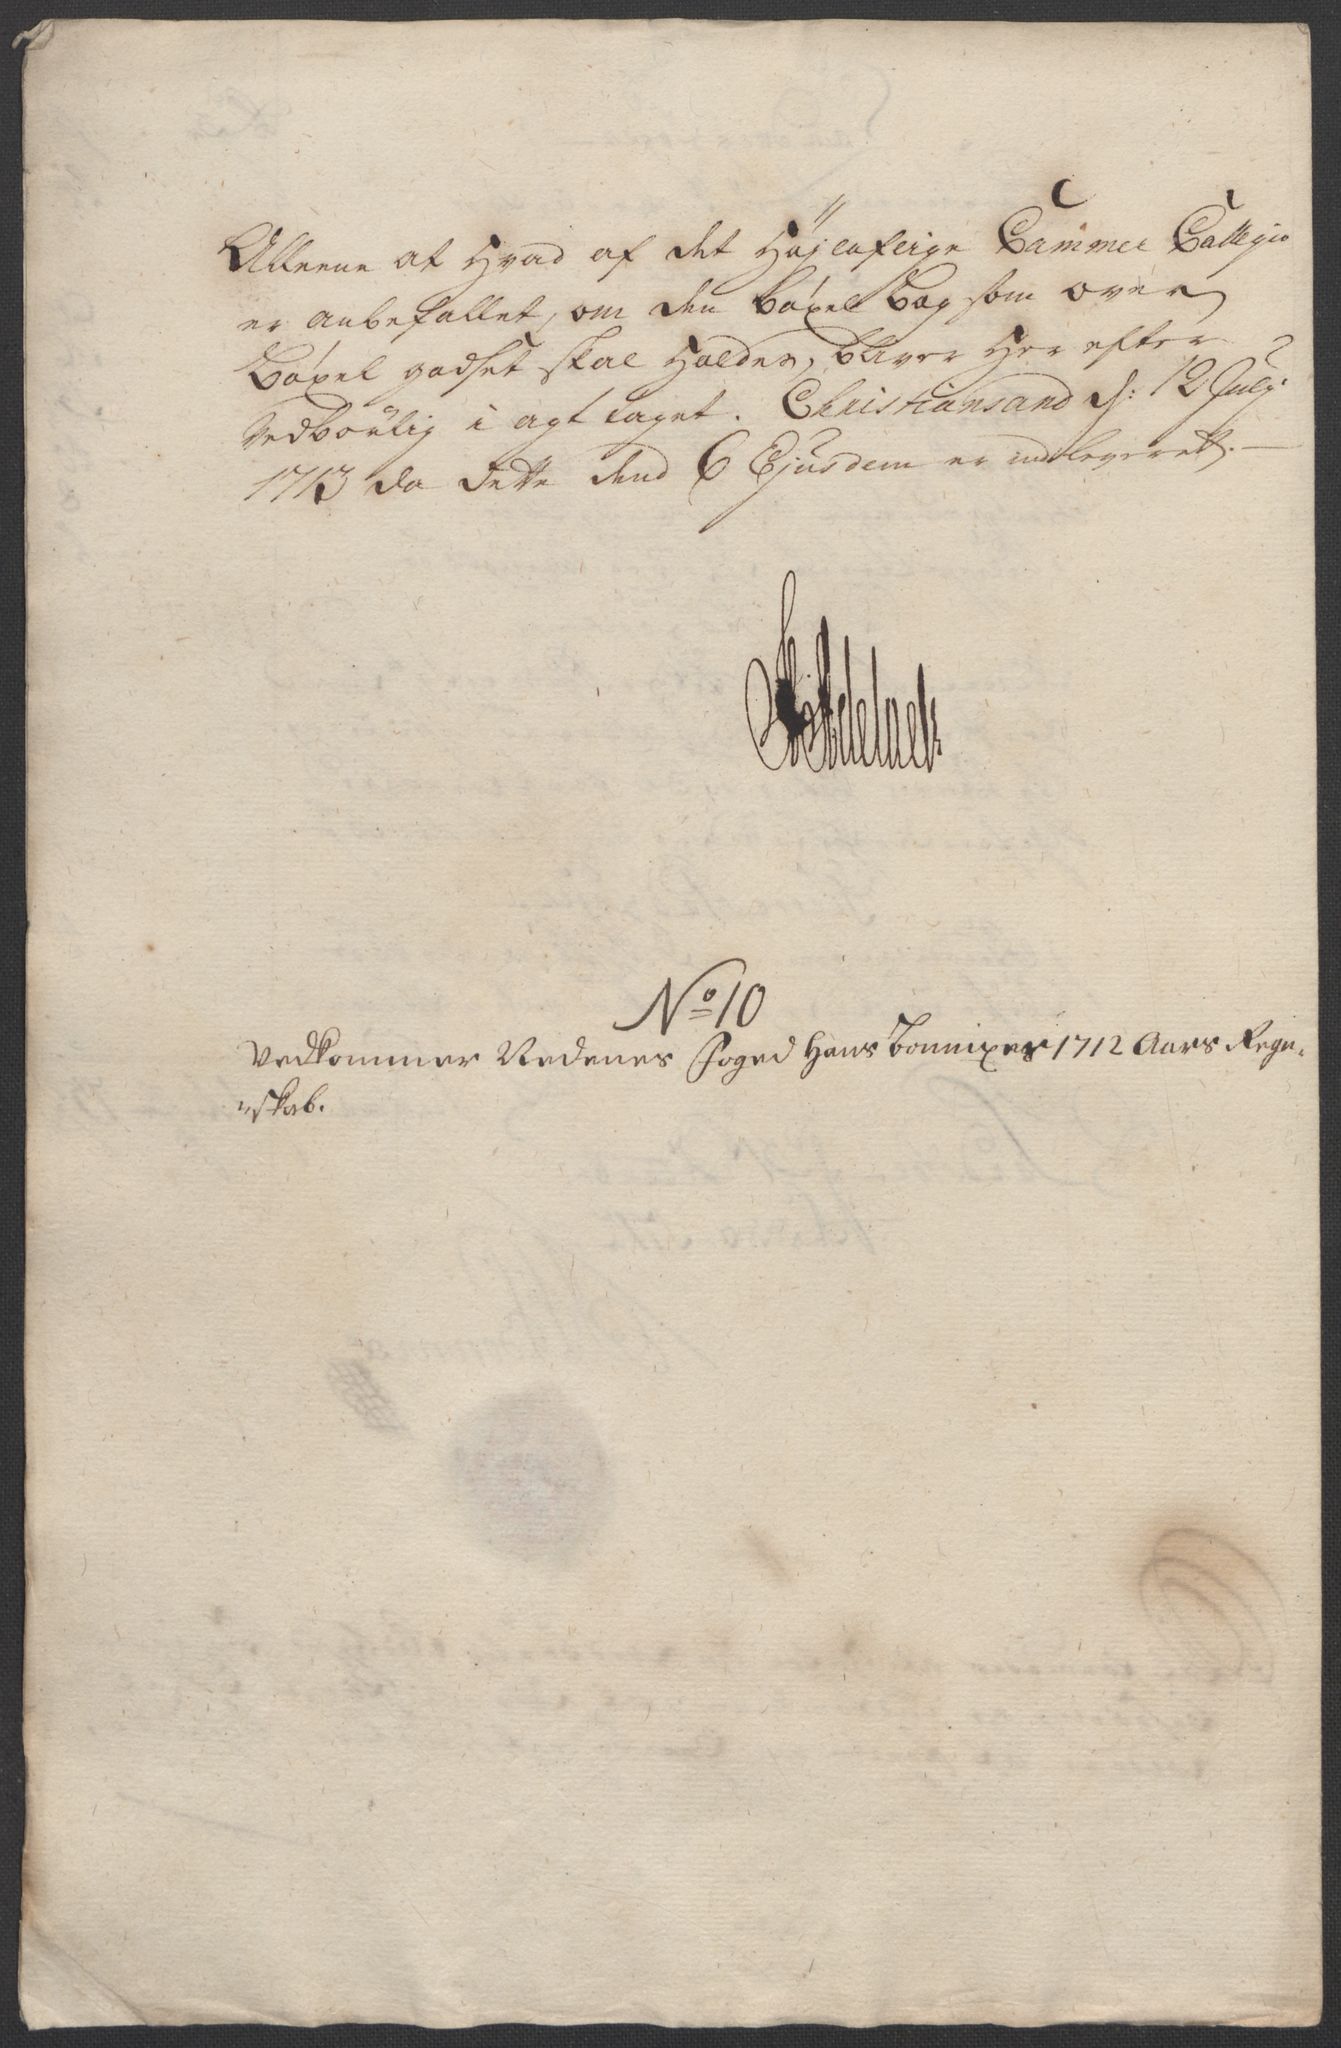 Alleene at Hvad af det Højloflige Cammer Collegio
er anbefallet, om den Böxel Bog som over
Böxel godset skal Holdes, bliver Her efter
vedbörlig i agt taget. Christiansand d: 12 July
1713 da dette dend 6 Ejusdem er indleveret.
No 10
Vedkommer Nedenes Foged Hans Bonnixes 1712 Aars Regn-
skab.